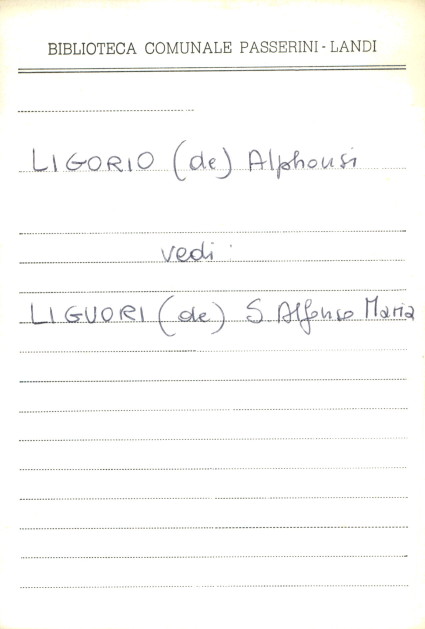 BIBLIOTECA COMUNALE PASSERINI - LANDI
LIGORIO (de) Alphonsi
vedi:
LIGUORI (de) S. Alfonso Maria